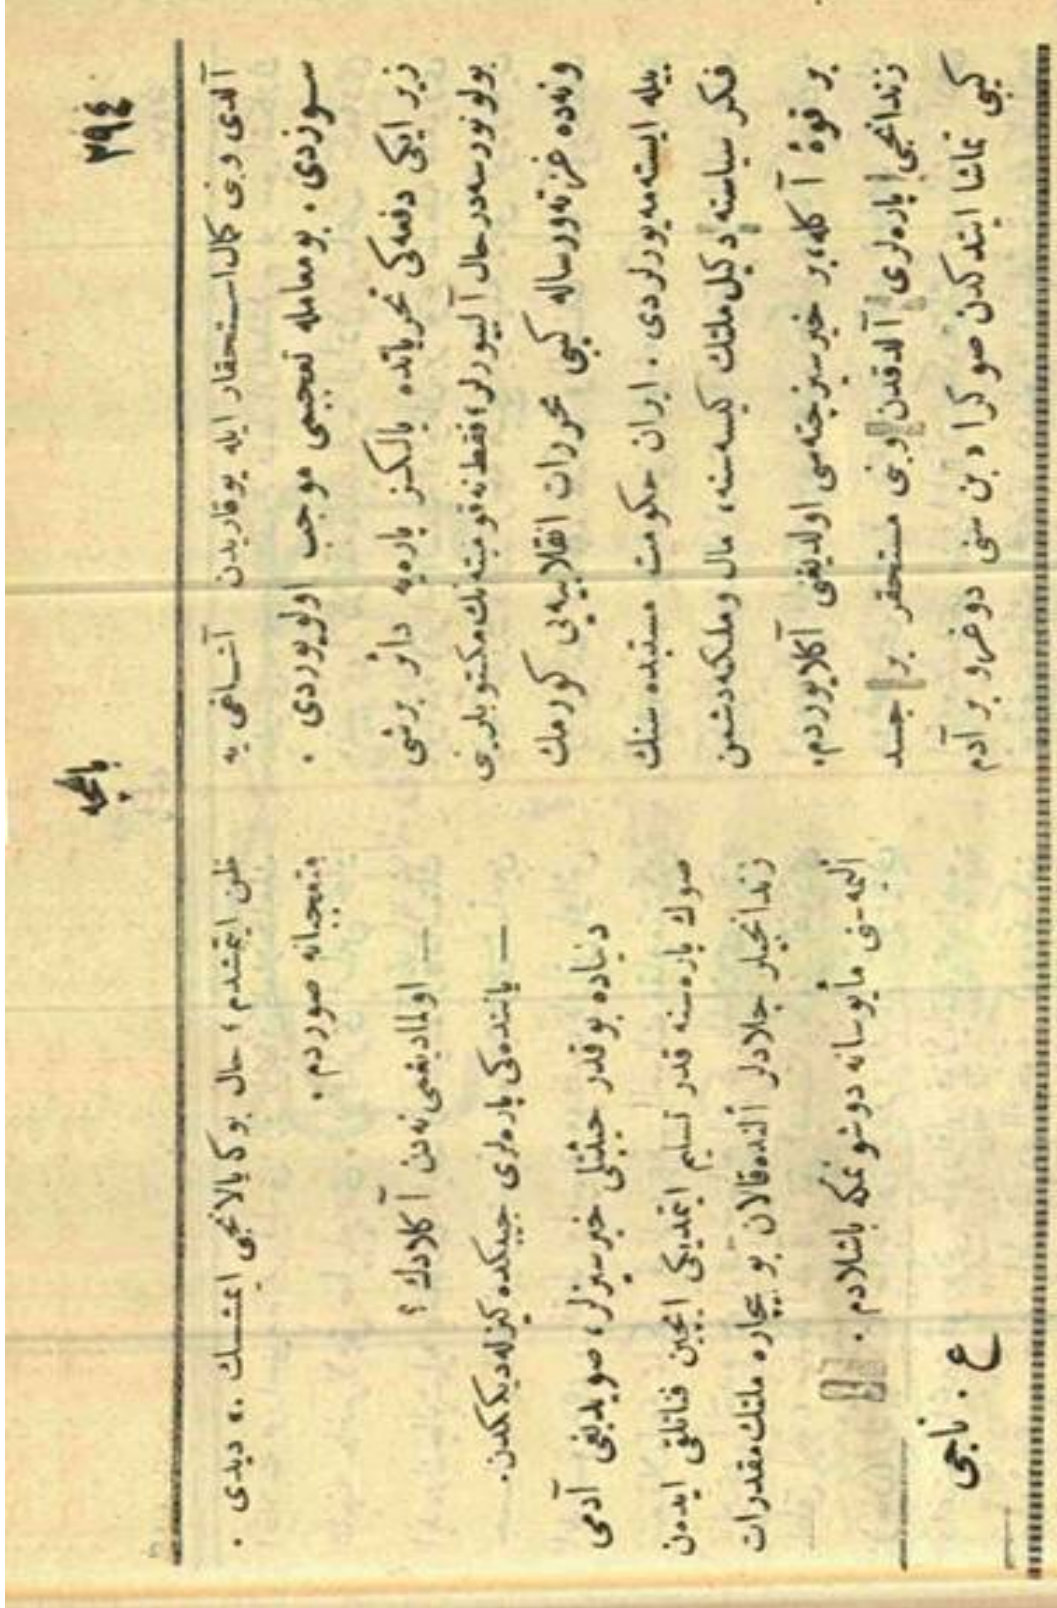 ٢٩٤
باغچه
آلدی و بنی کمال استحقار ایله یوقاریدن آشاغی یه
سوزدی. بو معامله تعجبمی موجب اولویوردی .
زیرا ایکی دفعه کی تحریاتده یالکز پاره یه دائر برشی
بولونورسه درحال آلییورلر، فقط نه قومیته نك مکتوبلرینی
ونه ده غزته ورساله کبی محررات انقلابیه یی کورمك
بیله ایسته مه یورلردی . ایران حکومت مستبده سنك
فکر سیاسته دکیل ملتك کیسه سنه، مال وملکه دشمن
بر قوهٔ آکله، بر خیرسیز چته سی اولدیغنی آکلایوردم.
زندانجی پاره لری آلدقدن و بنی مستحقر بر جسد
کبی تماشا ایتدکدن صوکرا « بن سنی دوغرو بر آدم
ظن ایتمشدم ؛ حال بوکه یالانجی ایمشسك .» دیدی .
متعجبانه صوردم.
— اولمادیغمی نه دن آکلادك ؟
— یاننده کی پاره لری جیبکده کیزله دیککدن.
دنیاده بو قدر حیثیتلی خیرسیزلر، صویدیغی آدمی
صوك پاره سنه قدر تسلیم ایتمدیکی ایچین قناتلقی ایدەن
زندانجیلر جلادلر ألنده قالان بو بیچاره ملتك مقدرات
ألیمه سنی مأیوسانه دوشونمکه باشلادم .
ع . ناجی